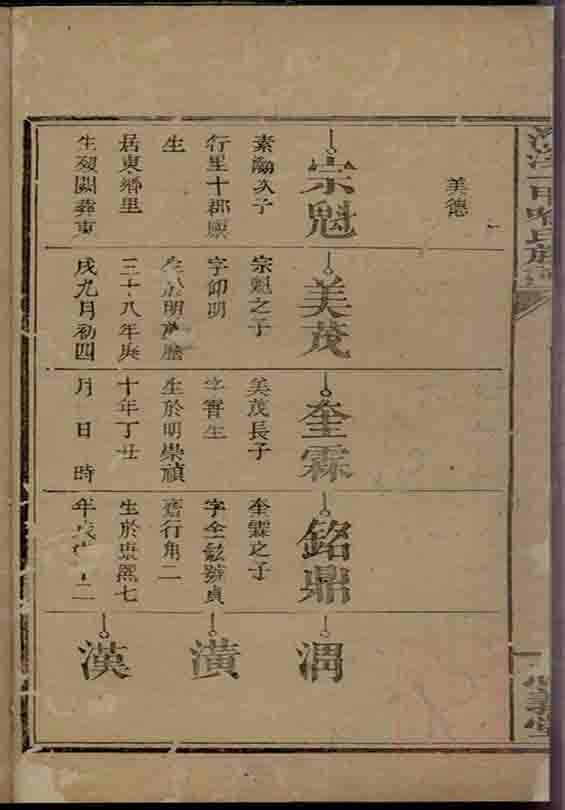 美德
宗魁
素瀚次子
行里十郡廪
生
居東鄉里
生歿闕葬東
美茂
宗魁之子
字仰明
生於明萬歷
三十八年庚
戌九月初四
奎霖
美茂長子
字實生
生於明崇禎
十年丁丑
月 日 時
銘鼎
奎霖之子
字全鉉號貞
齋行角二
生於康熙七
年戊申 二
渭
潢
漢